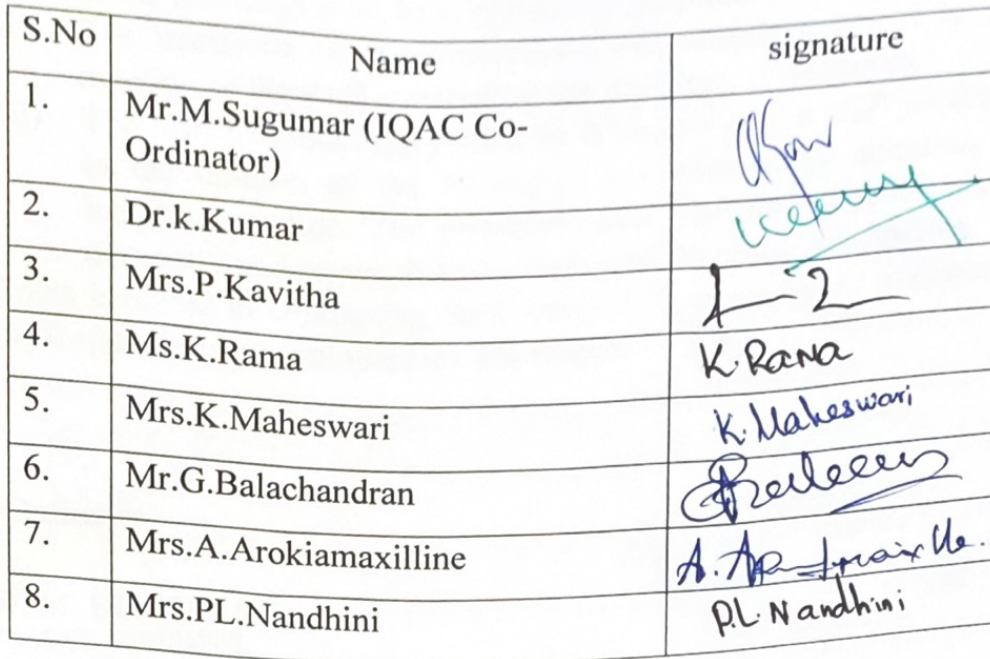 S.No Name signature
1. Mr.M.Sugumar (IQAC Co-
Ordinator)
2. Dr.k.Kumar
3. Mrs.P.Kavitha
4. Ms.K.Rama K.Rama
5. Mrs.K.Maheswari K.Maheswari
6. Mr.G.Balachandran
7. Mrs.A.Arokiamaxilline A.
8. Mrs.PL.Nandhini P.L.Nandhini